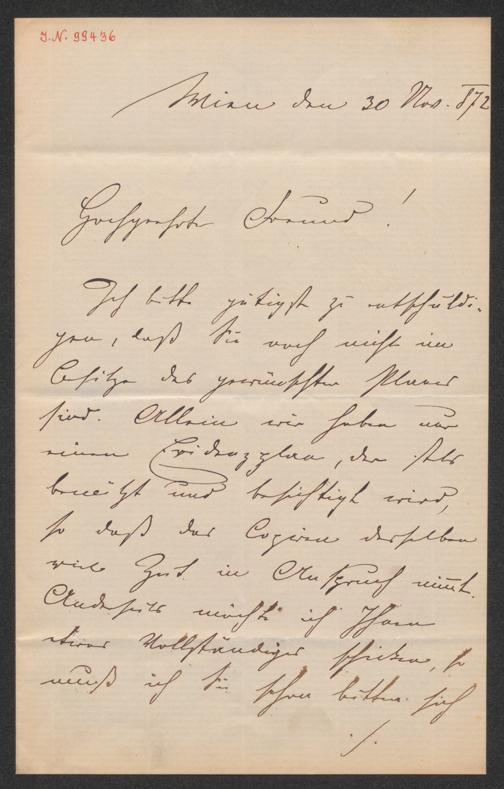 J.N. 99436
Wien den 30 Nov. 872
Hochgeehrter Freund!
Ich bitte gütigst zu entschuldi-
gen, daß Sie noch nicht im
Besitze des gewünschten Planes
sind. Allein wir haben nur
einen Evidenzplan, der stets
benützt und besichtigt wird,
so daß das Copiren desselben
viele Zeit in Anspruch nimt.
Anderseits möchte ich Ihnen
etwas Vollständiges schicken, so
muß ich Sie schon bitten sich
./.